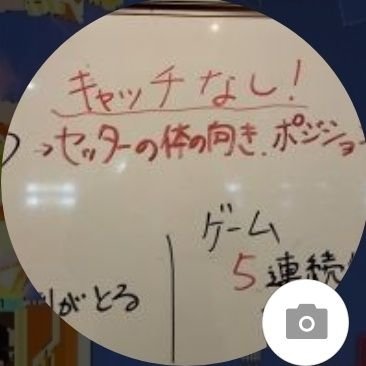 キャッチなし!
→セッターの体の向き、ポジショ
ゲーム
5連続
がとる